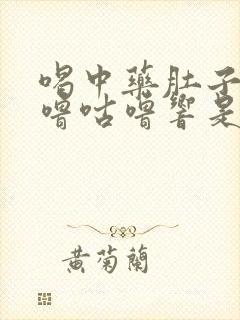 喝中藥肚子
嚕咕嚕響是
黃菊蘭